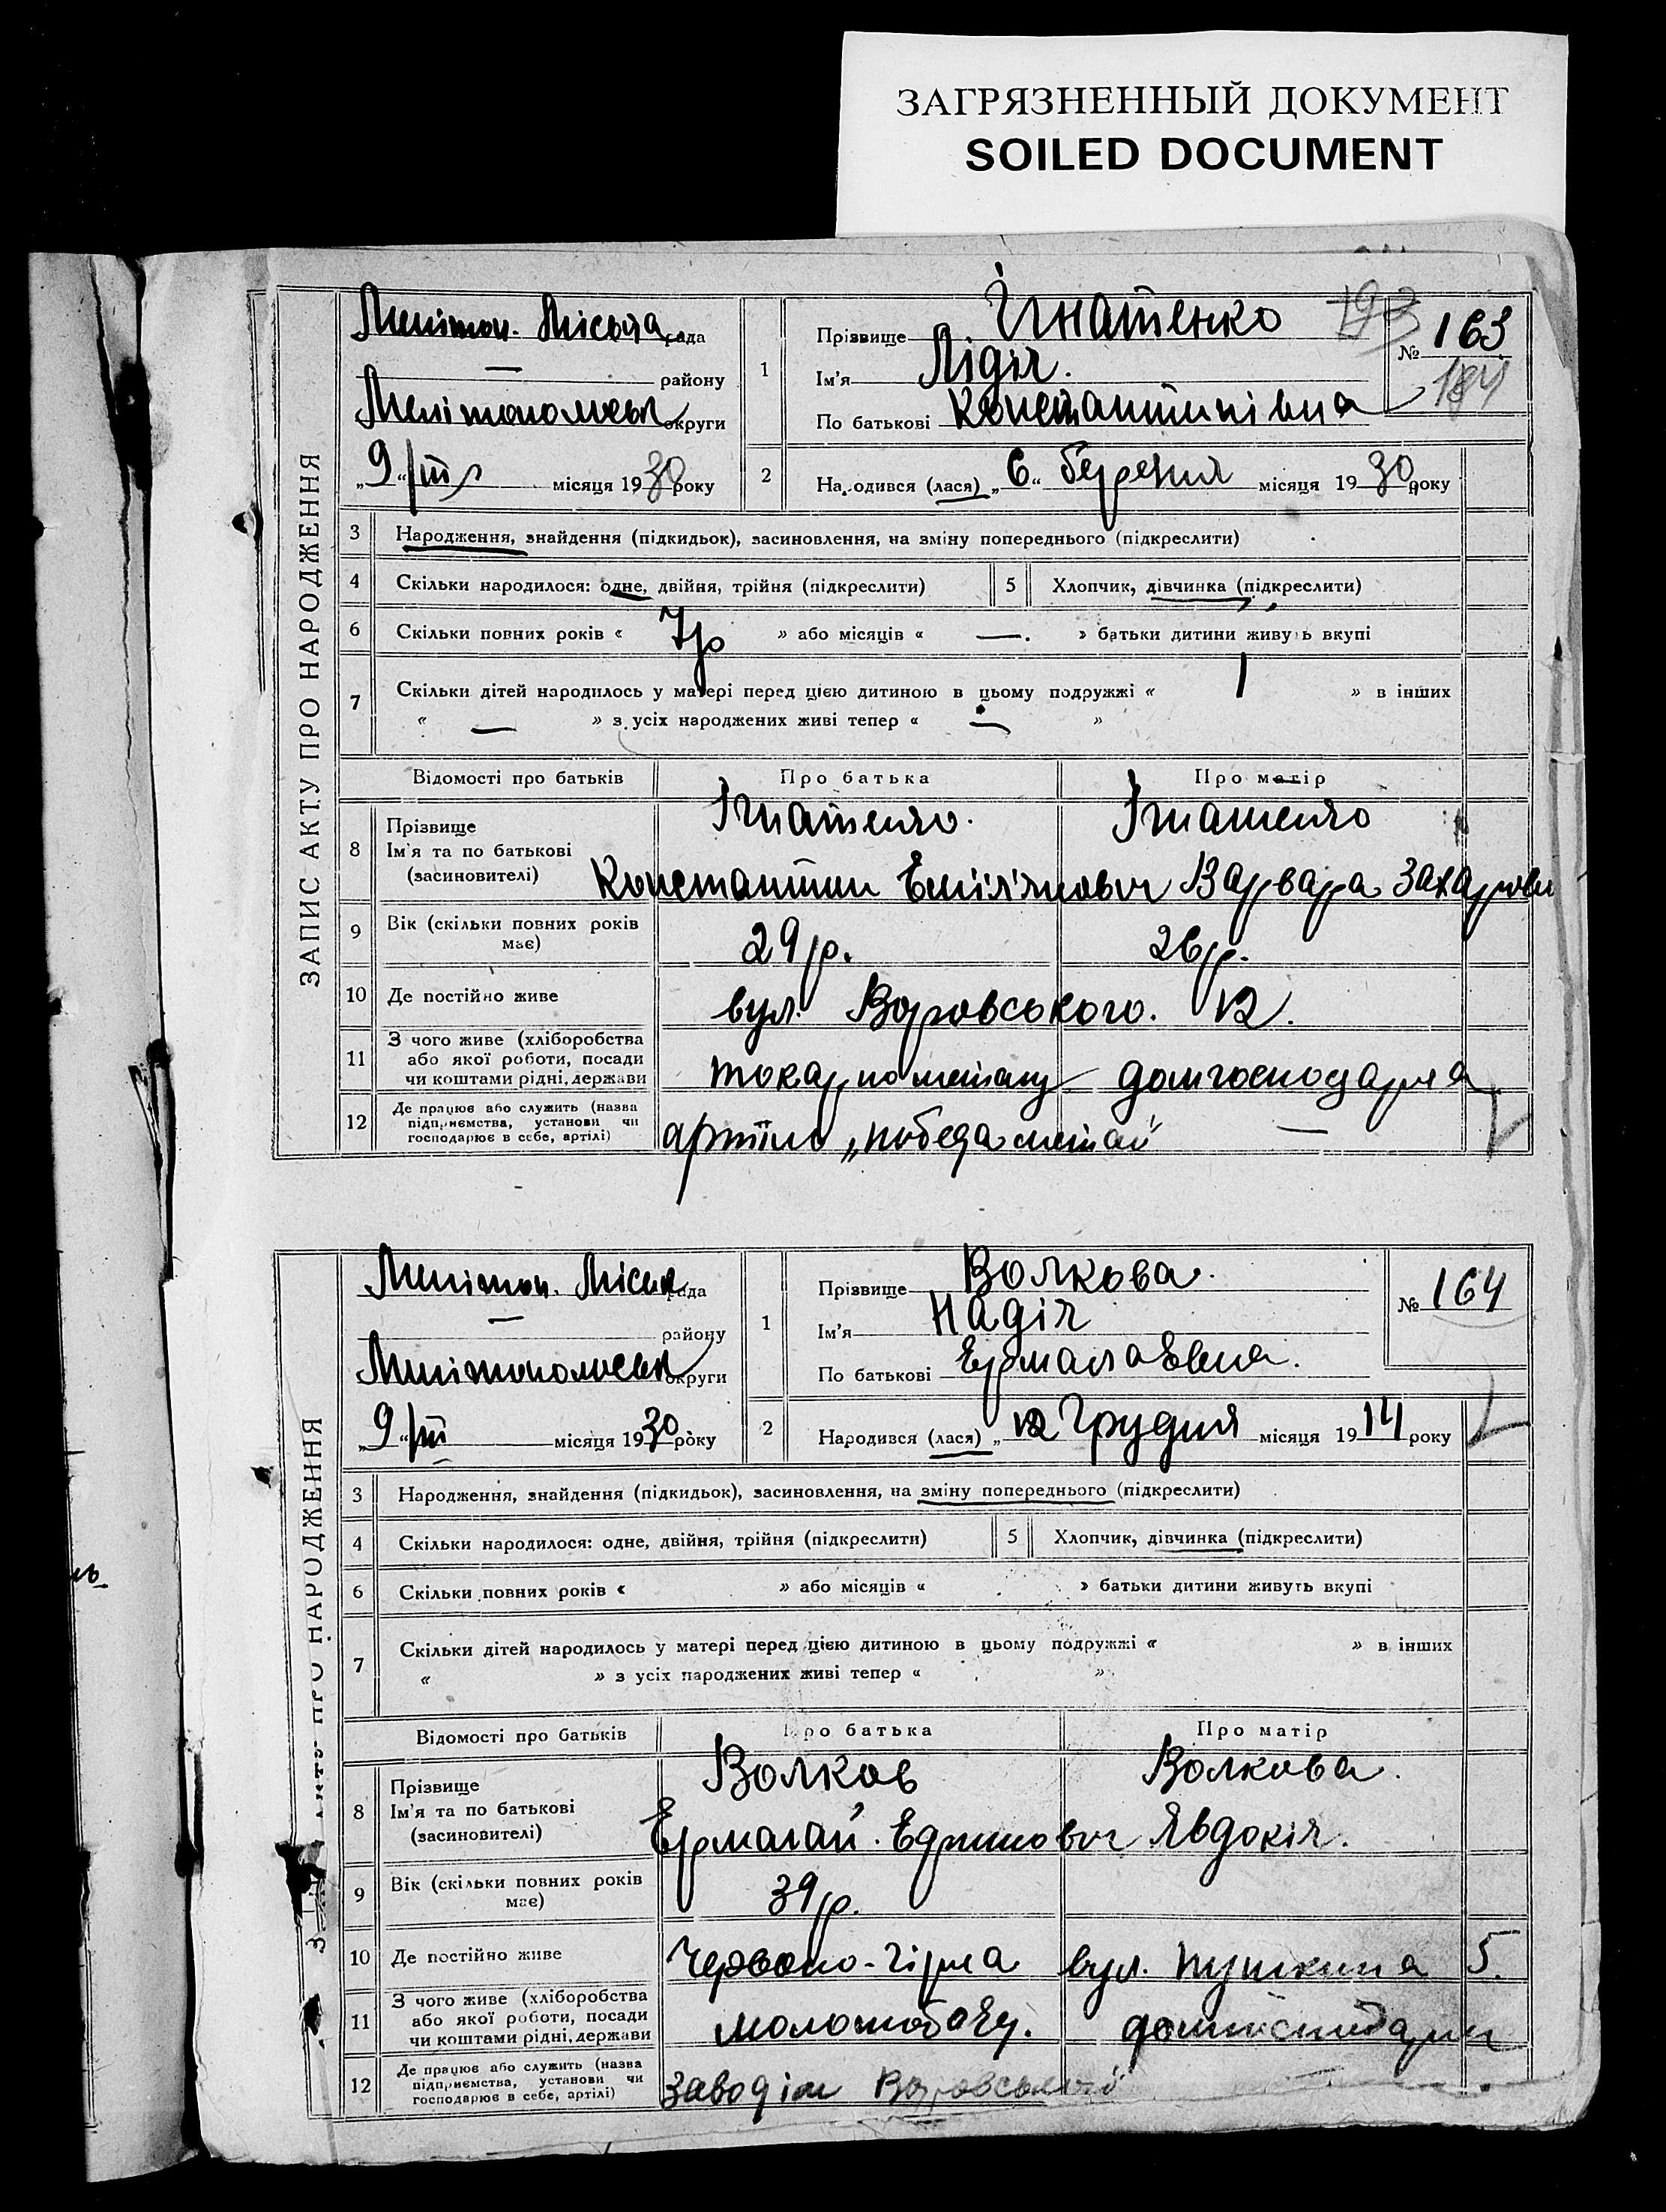 ЗАГРЯЗНЕННЫЙ ДОКУМЕНТ
SOILED DOCUMENT
ЗАПИС АКТУ ПРО НАРОДЖЕННЯ
Мелітоп. Міська рада
— району
округи
„9“ /III місяця 1930 року
1
Прізвище Игнатенко
Ім'я Лідія.
По батькові Константинівна
193
№ 163
184
2 Народився (лася) „6“ березня місяця 1930 року
3 Народження, знайдення (підкидьок), засиновлення, на зміну попереднього (підкреслити)
4 Скільки народилося: одне, двійня, трійня (підкреслити) 5 Хлопчик, дівчинка (підкреслити)
6 Скільки повних років « 7р » або місяців « —. » батьки дитини живуть вкупі
7 Скільки дітей народилось у матері перед цією дитиною в цьому подружжі « 1 » в інших
« — » з усіх народжених живі тепер « — »
Відомості про батьків Про батька Про матір
8 Прізвище Ігнатенко. Ігнатенко
Ім'я та по батькові
(засновителі) Константин Варвара
9 Вік (скільки повних років має) 29 р. 26 р.
10 Де постійно живе вул. Воровського. 12.
11 З чого живе (хліборобства або якої роботи, посади чи коштами рідні, держави токар по металу домгосподарка
12 Де працює або служить (назва підприємства, установи чи господарює в себе, артілі) артіль „победа —
ЗАПИС АКТУ ПРО НАРОДЖЕННЯ
Мелітоп. Міська рада
— району
округи
„9“ /III місяця 1930 року
1
Прізвище Волкова.
Ім'я Надія
По батькові Ермалаевна.
№ 164
2 Народився (лася) „12 Грудня місяця 1914 року
3 Народження, знайдення (підкидьок), засиновлення, на зміну попереднього (підкреслити)
4 Скільки народилося: одне, двійня, трійня (підкреслити) 5 Хлопчик, дівчинка (підкреслити)
6 Скільки повних років « » або місяців « » батьки дитини живуть вкупі
7 Скільки дітей народилось у матері перед цією дитиною в цьому подружжі « » в інших
« » з усіх народжених живі тепер « »
Відомості про батьків Про батька Про матір
8 Прізвище Волков Волкова.
Ім'я та по батькові
(засиновителі) Ермалай. Явдокія.
9 Вік (скільки повних років має) 39 р.
10 Де постійно живе Червоно-гірка вул. Пушкина 5.
11 З чого живе (хліборобства або якої роботи, посади чи коштами рідні, держави молотобоец. домгосподарка
12 Де працює або служить (назва підприємства, установи чи господарює в себе, артілі) завод ім Воровського